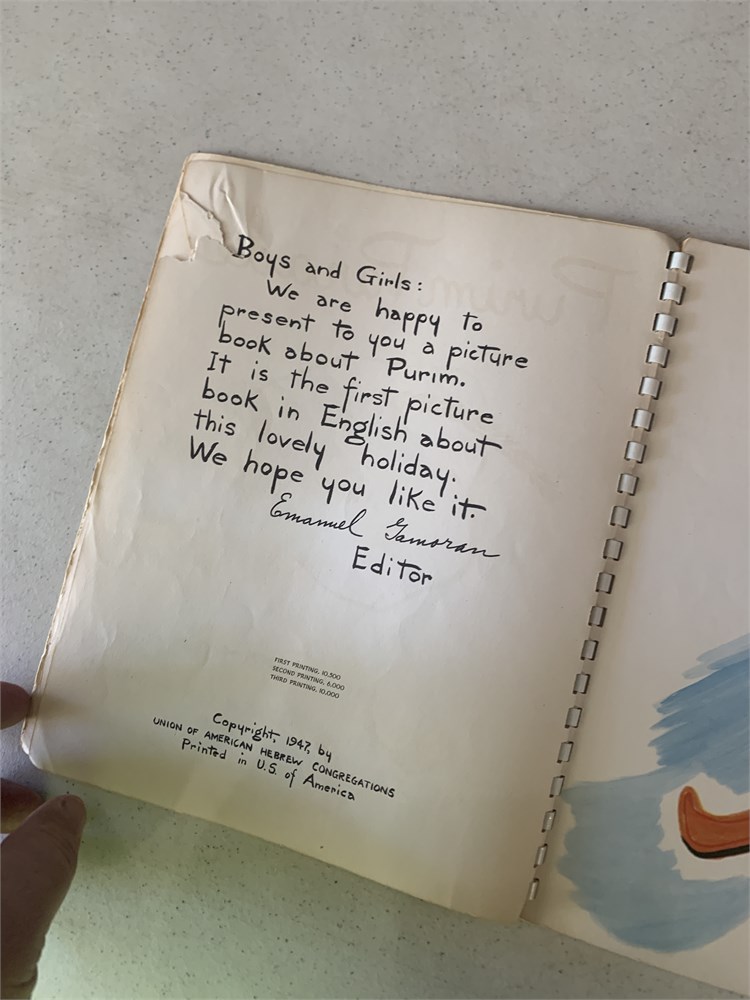 Boys and Girls:
We are happy to
present to you a picture
book about Purim.
It is the first picture
book in English about
this lovely holiday.
We hope you like it.
Emanuel Gamoran
Editor
FIRST PRINTING, 10,500
SECOND PRINTING, 6,000
THIRD PRINTING, 10,000
Copyright, 1947, by
UNION OF AMERICAN HEBREW CONGREGATIONS
Printed in U.S. of America